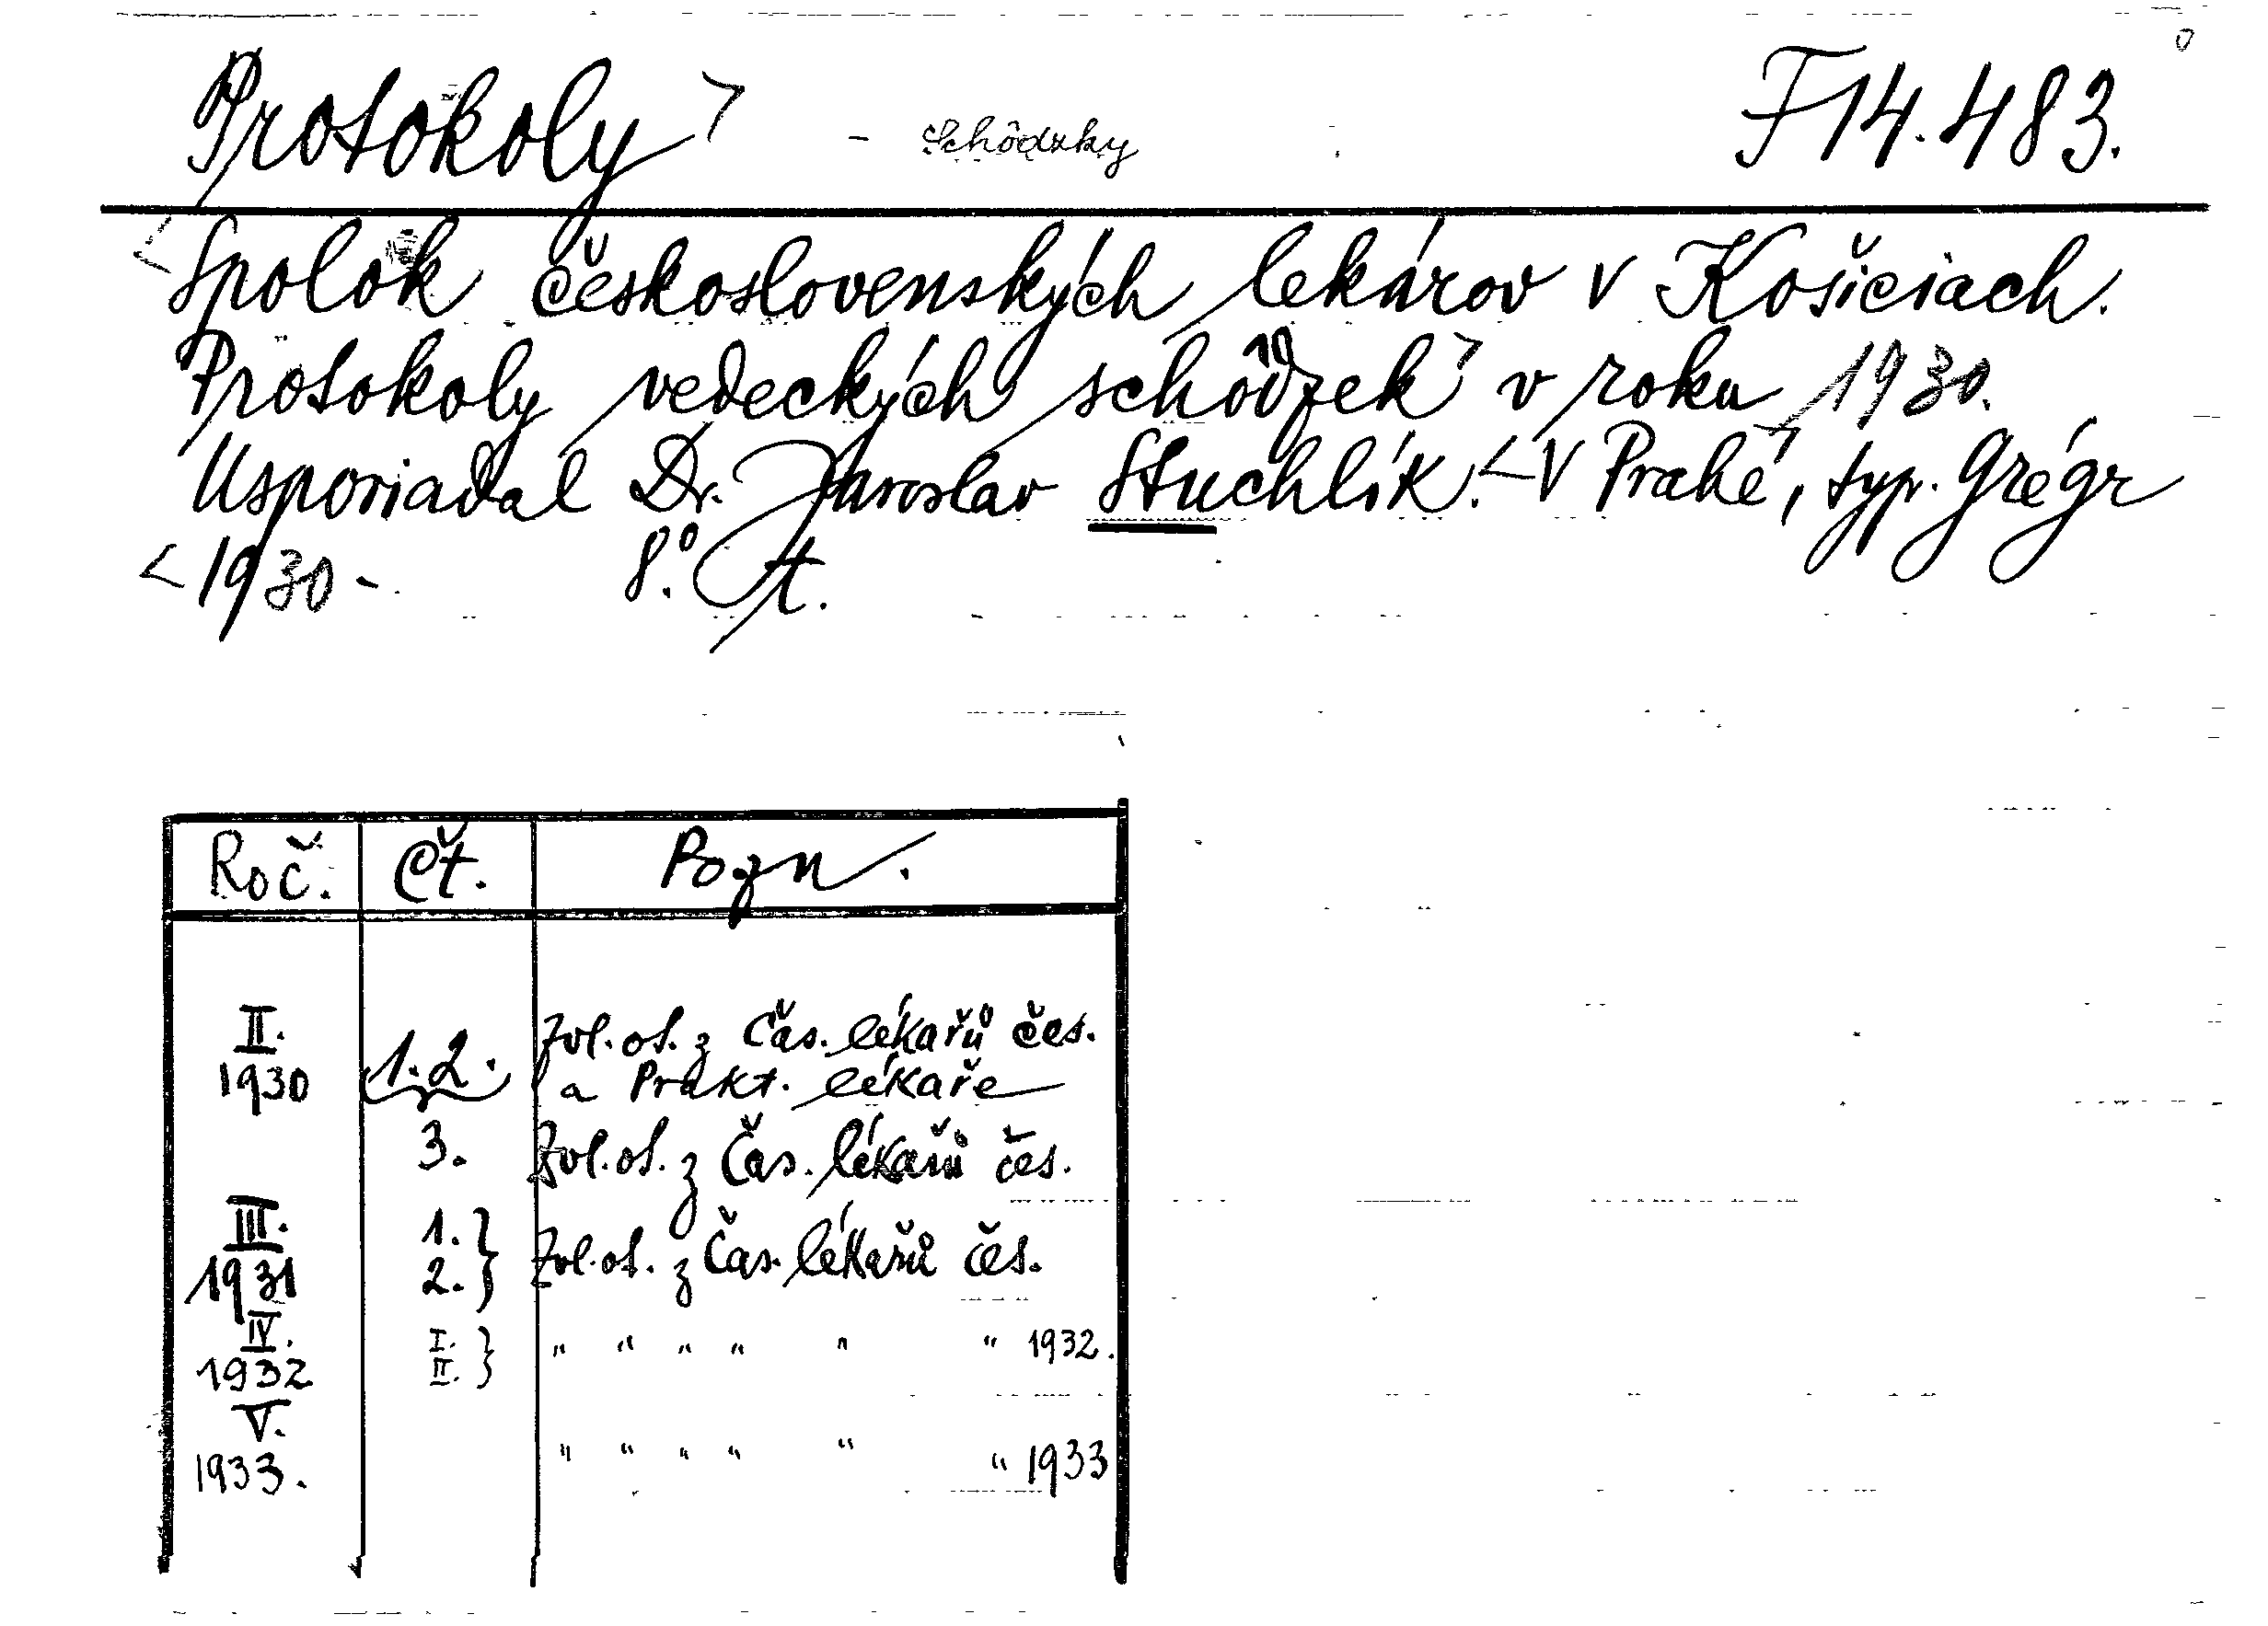 Protokoly - schôdzky F 14.483.
Spolok československých lekárov v Košiciach.
Protokoly vedeckých schôdzek v roku 1930.
Usporiadal Dr. Jaroslav Stuchlík. V Prahe, typ. Grégr
1930 - 8.° A.
Roč. Čt. Pozn.
II. 1.2. Zvl. ot. z Čas. lékařů čes.
1930 a Prakt. lékaře
3. Zvl. ot. z Čas. lékařů čes.
III. 1. }
1931 2. } Zvl. ot. z Čas. lékařů čes.
IV. I. } " " " " " " 1932.
1932 II. }
V.
1933. " " " " " " 1933